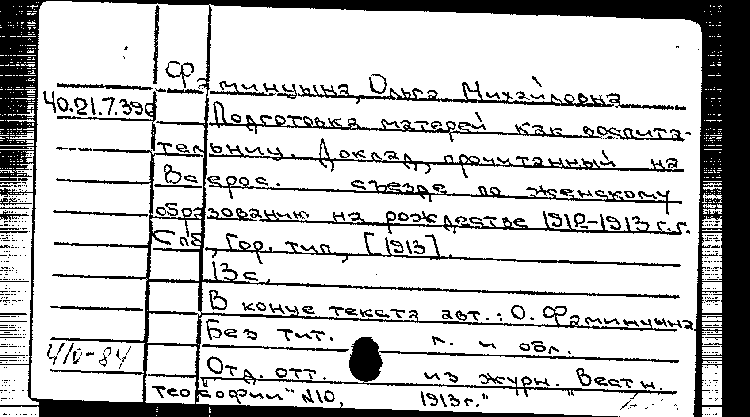 Фаминцына, Ольга Михайловна
40.21.7.396
Подготовка матерей как воспита-
тельниц. Доклад, прочитанный на
Всерос. съезде по женскому
образованию на рождестве 1912-1913 г.г.
Спб, Гор. тип., [1913].
13 с.
В конце текста авт.: О. Фаминцына
Без тит. л. и обл.
410-84
Отд. отт. из журн. "Вестн.
теософии" №10, 1913 г."